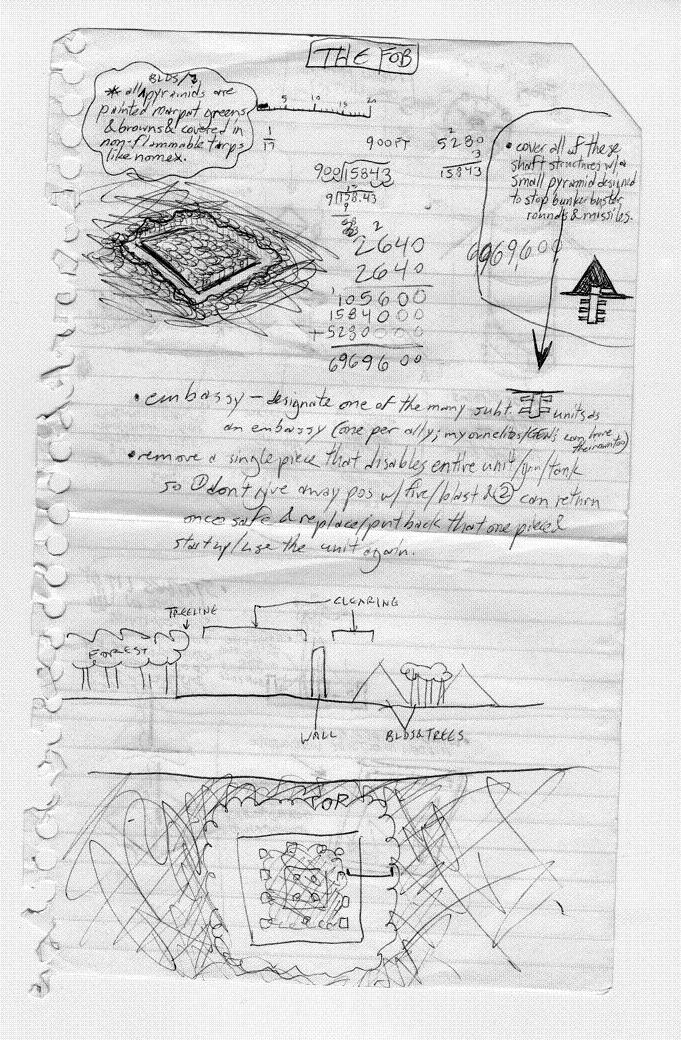 THE FOB
BLDS/
* all pyramids are
painted marpat greens
& browns & covered in
non-flammable tarps
like nomex.
5 10 15 20
1
17
900FT
2
5280
3
15843
900 15843
9 158.43
9
2
2640
2640
105600
1584000
+5280000
6969600
• cover all of these
shaft structures w/a
small pyramid designed
to stop bunker buster
rounds & missiles.
6969,600
• embassy – designate one of the many subt. units as
an embassy (one per ally; my own can have
their own too)
• remove a single piece that disables entire unit/gun/tank
so ① don't give away pos w/ fire/blast & ② can return
once safe & replace/put back that one piece &
start up/use the unit again.
TREELINE
CLEARING
FOREST
WALL
BLDS & TREES
TOP